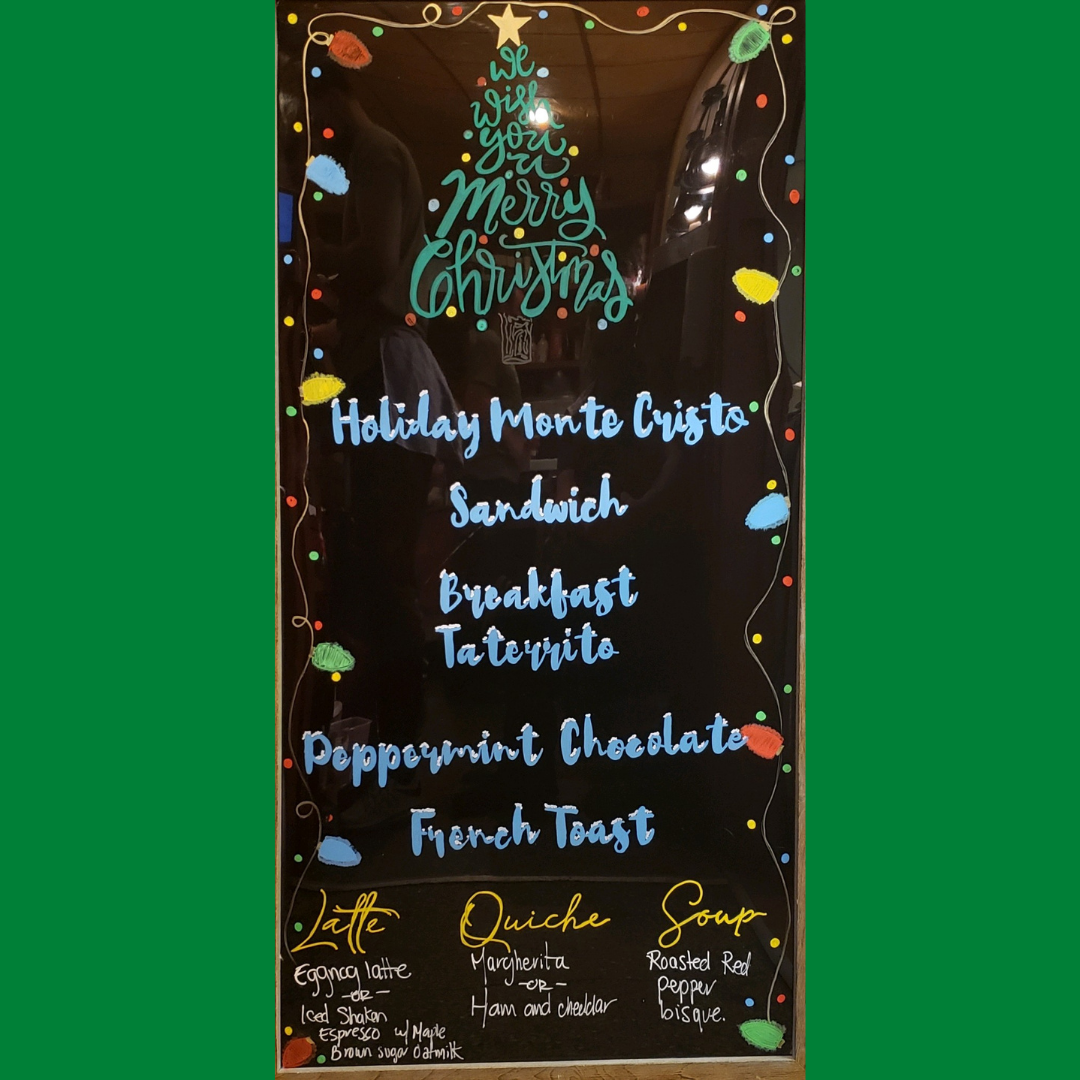 we
wish
you
a
Merry
Christmas
Holiday Monte Cristo
Sandwich
Breakfast
Taterrito
Peppermint Chocolate
French Toast
Latte
Eggnog latte
-OR-
Iced Shakan
Espresso w/ Maple
Brown sugar Oatmilk
Quiche
Margherita
-OR-
Ham and cheddar
Soup
Roasted Red
pepper
bisque.